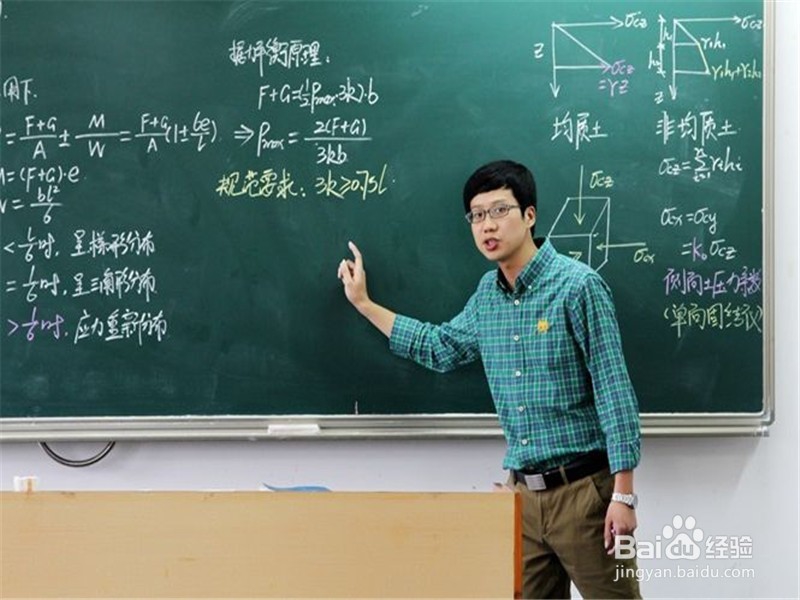 用下.
= F+G/A ± M/W = F+G/A (1± 6e/l)
M=(F+G)·e
W= bl²/6
< l/6时, 呈梯形分布
= l/6时, 呈三角形分布
> l/6时, 应力重新分布
据平衡原理:
F+G=(½Pmax·3k)·b
⇒ Pmax = 2(F+G)/3kb
规范要求: 3k≥0.75l
σcz
z
σcz
=γz
均质土
σcz
h₁
h₂
γ₁h₁
γ₁h₁+γ₂h₂
z
非均质土
σcz=Σγihi
σcz
σcx
σcx=σcy
=K₀σcz
侧向土压力系数
(单向固结仪)
Baidu 经验
jingyan.baidu.com